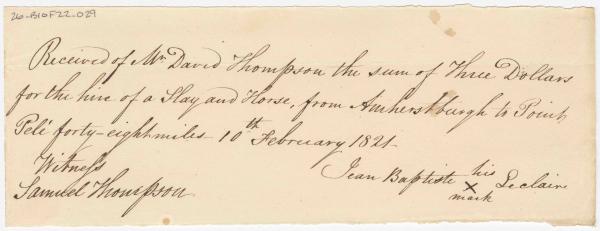 26-B10F22-029
Received of Mr. David Thompson the sum of Three Dollars
for the hire of a Slay and Horse, from Amherstburgh to Point
Pelé forty-eight miles 10th February 1821-
Witness
Samuel Thompson
Jean Baptiste his Leclair
X
mark